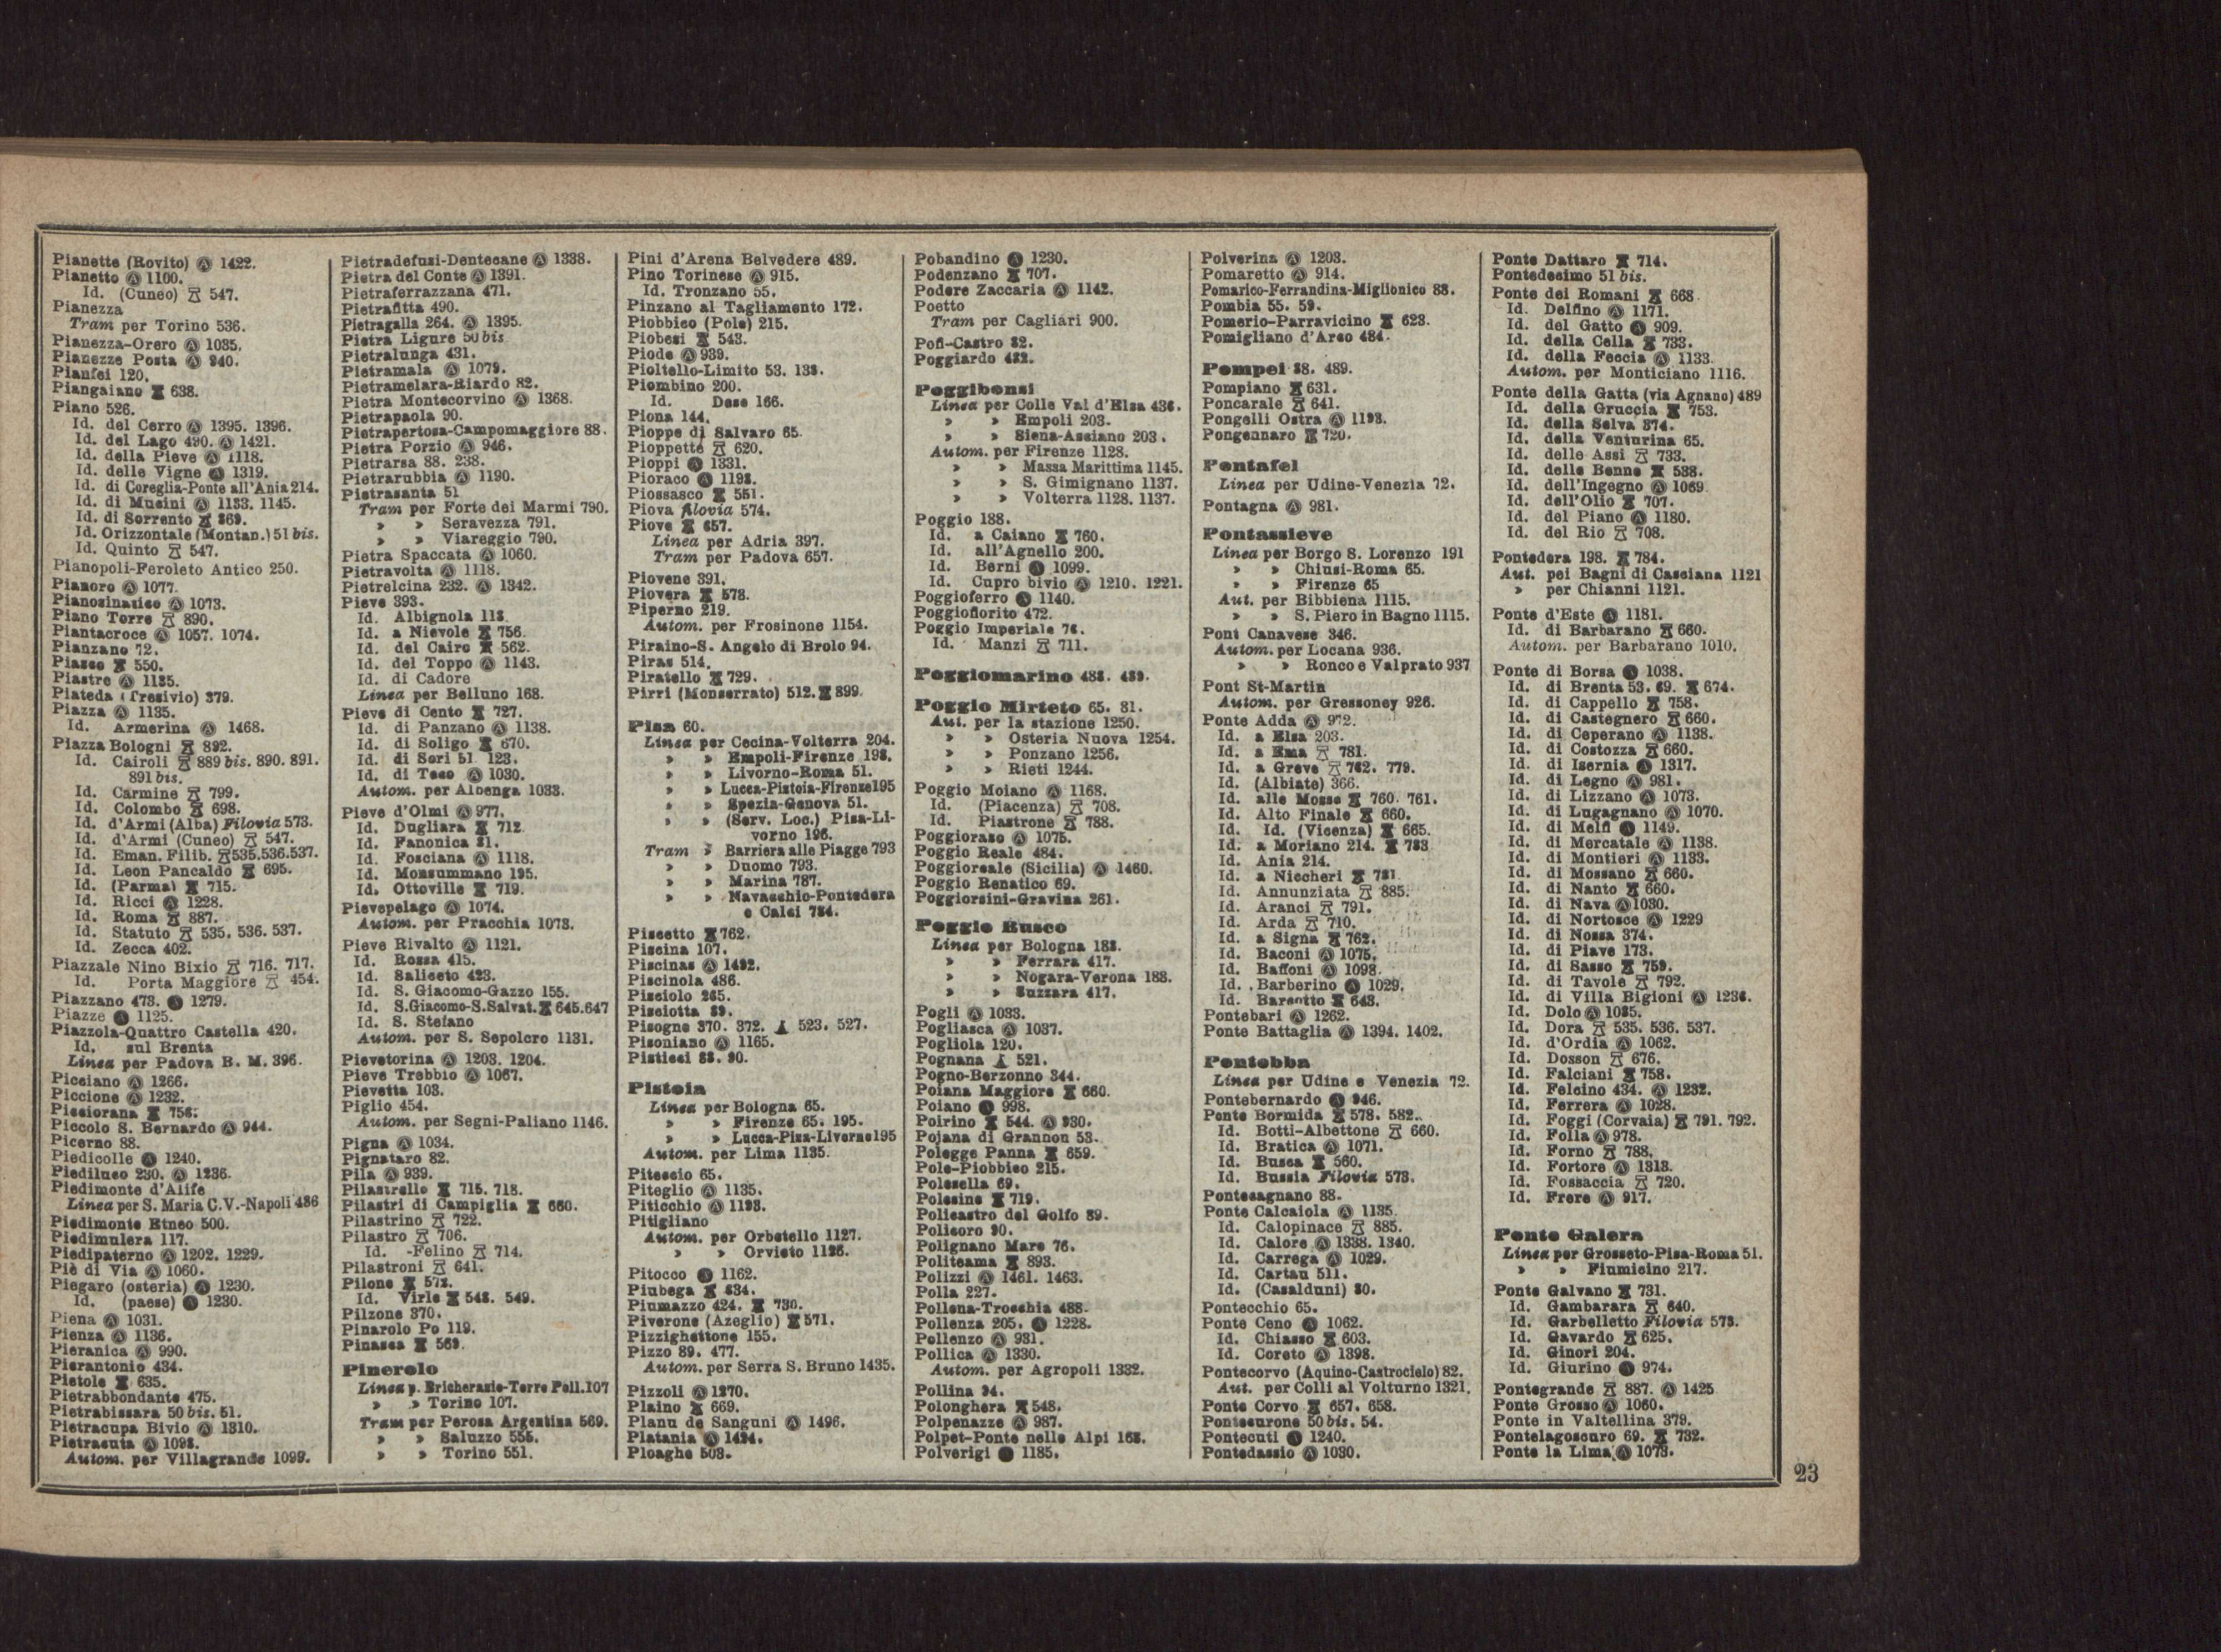 Pianette (Rovito) Ⓐ 1422.
Pianetto Ⓐ 1100.
Id. (Cuneo) 547.
Pianezza
Tram per Torino 536.
Pianezza-Orero Ⓐ 1035.
Pianezze Posta Ⓐ 940.
Pianfei 120.
Piangaiano 638.
Piano 526.
Id. del Cerro Ⓐ 1395. 1396.
Id. del Lago 490. Ⓐ 1421.
Id. della Pieve Ⓐ 1118.
Id. delle Vigne Ⓐ 1319.
Id. di Coreglia-Ponte all'Ania 214.
Id. di Mucini Ⓐ 1133. 1145.
Id. di Sorrento 869.
Id. Orizzontale (Montan.) 51 bis.
Id. Quinto 547.
Pianopoli-Feroleto Antico 250.
Pianoro Ⓐ 1077.
Pianosinatico Ⓐ 1073.
Piano Torre 890.
Piantacroce Ⓐ 1057. 1074.
Pianzano 72.
Piasco 550.
Piastre Ⓐ 1135.
Piateda (Tresivio) 379.
Piazza Ⓐ 1135.
Id. Armerina Ⓐ 1468.
Piazza Bologni 892.
Id. Cairoli 889 bis. 890. 891.
891 bis.
Id. Carmine 799.
Id. Colombo 698.
Id. d'Armi (Alba) Filovia 573.
Id. d'Armi (Cuneo) 547.
Id. Eman. Filib. 535.536.537.
Id. Leon Pancaldo 695.
Id. (Parma) 715.
Id. Ricci Ⓐ 1228.
Id. Roma 887.
Id. Statuto 535. 536. 537.
Id. Zecca 402.
Piazzale Nino Bixio 716. 717.
Id. Porta Maggiore 454.
Piazzano 473. Ⓐ 1279.
Piazze Ⓐ 1125.
Piazzola-Quattro Castella 420.
Id. sul Brenta
Linea per Padova B. M. 396.
Picciano Ⓐ 1266.
Piccione Ⓐ 1232.
Picciorana 756.
Piccolo S. Bernardo Ⓐ 944.
Picerno 88.
Piedicolle Ⓐ 1240.
Piediluco 230. Ⓐ 1236.
Piedimonte d'Alife
Linea per S. Maria C.V.-Napoli 486
Piedimonte Etneo 500.
Piedimulera 117.
Piedipaterno Ⓐ 1202. 1229.
Piè di Via Ⓐ 1060.
Piegaro (osteria) Ⓐ 1230.
Id. (paese) Ⓐ 1230.
Piena Ⓐ 1031.
Pienza Ⓐ 1136.
Pieranica Ⓐ 990.
Pierantonio 434.
Pietole 635.
Pietrabbondante 475.
Pietrabissara 50 bis. 51.
Pietracupa Bivio Ⓐ 1310.
Pietracuta Ⓐ 1098.
Autom. per Villagrande 1099.
Pietradefusi-Dentecane Ⓐ 1338.
Pietra del Conte Ⓐ 1391.
Pietraferrazzana 471.
Pietrafitta 490.
Pietragalla 264. Ⓐ 1395.
Pietra Ligure 50 bis
Pietralunga 431.
Pietramala Ⓐ 1079.
Pietramelara-Riardo 82.
Pietra Montecorvino Ⓐ 1368.
Pietrapaola 90.
Pietrapertosa-Campomaggiore 88.
Pietra Porzio Ⓐ 946.
Pietrarsa 88. 238.
Pietrarubbia Ⓐ 1190.
Pietrasanta 51
Tram per Forte dei Marmi 790.
» » Seravezza 791.
» » Viareggio 790.
Pietra Spaccata Ⓐ 1060.
Pietravolta Ⓐ 1118.
Pietrelcina 232. Ⓐ 1342.
Pieve 393.
Id. Albignola 118.
Id. a Nievole 756.
Id. del Cairo 562.
Id. del Toppo Ⓐ 1143.
Id. di Cadore
Linea per Belluno 168.
Pieve di Cento 727.
Id. di Panzano Ⓐ 1138.
Id. di Soligo 670.
Id. di Sori 51. 123.
Id. di Teco Ⓐ 1030.
Autom. per Albenga 1033.
Pieve d'Olmi Ⓐ 977.
Id. Dugliara 712.
Id. Fanonica 81.
Id. Fosciana Ⓐ 1118.
Id. Monsummano 195.
Id. Ottoville 719.
Pievepelago Ⓐ 1074.
Autom. per Pracchia 1073.
Pieve Rivalto Ⓐ 1121.
Id. Rossa 415.
Id. Saliceto 423.
Id. S. Giacomo-Gazzo 155.
Id. S.Giacomo-S.Salvat. 645.647
Id. S. Stefano
Autom. per S. Sepolcro 1131.
Pievetorina Ⓐ 1203. 1204.
Pieve Trebbio Ⓐ 1067.
Pievetta 103.
Piglio 454.
Autom. per Segni-Paliano 1146.
Pigna Ⓐ 1034.
Pignataro 82.
Pila Ⓐ 939.
Pilastrello 715. 718.
Pilastri di Campiglia 660.
Pilastrino 722.
Pilastro 706.
Id. -Felino 714.
Pilastroni 641.
Pilone 573.
Id. Virle 548. 549.
Pilzone 370.
Pinarolo Po 119.
Pinasca 569.
Pinerolo
Linea p. Bricherasio-Torre Pell.107
» » Torino 107.
Tram per Perosa Argentina 569.
» » Saluzzo 555.
» » Torino 551.
Pini d'Arena Belvedere 489.
Pino Torinese Ⓐ 915.
Id. Tronzano 55.
Pinzano al Tagliamento 172.
Piobbico (Pole) 215.
Piobesi 543.
Piode Ⓐ 939.
Pioltello-Limito 53. 138.
Piombino 200.
Id. Dese 166.
Piona 144.
Pioppe di Salvaro 65.
Pioppette 620.
Pioppi Ⓐ 1331.
Pioraco Ⓐ 1198.
Piossasco 551.
Piova filovia 574.
Piove 657.
Linea per Adria 397.
Tram per Padova 657.
Piovene 391.
Piovera 578.
Piperno 219.
Autom. per Frosinone 1154.
Piraino-S. Angelo di Brolo 94.
Piras 514.
Piratello 729.
Pirri (Monserrato) 512. 899.
Pisa 60.
Linea per Cecina-Volterra 204.
» » Empoli-Firenze 198.
» » Livorno-Roma 51.
» » Lucca-Pistoia-Firenze195
» » Spezia-Genova 51.
» » (Serv. Loc.) Pisa-Li-
vorno 196.
Tram » Barriera alle Piagge 793
» » Duomo 793.
» » Marina 787.
» » Navacchio-Pontedera
e Calci 784.
Piscetto 762.
Piscina 107.
Piscinas Ⓐ 1492.
Piscinola 486.
Pisciolo 265.
Pisciotta 89.
Pisogne 370. 372. 523. 527.
Pisoniano Ⓐ 1165.
Pisticci 88. 90.
Pistoia
Linea per Bologna 65.
» » Firenze 65. 195.
» » Lucca-Pisa-Livorno195
Autom. per Lima 1135.
Piteccio 65.
Piteglio Ⓐ 1135.
Piticchio Ⓐ 1193.
Pitigliano
Autom. per Orbetello 1127.
» » Orvieto 1126.
Pitocco Ⓐ 1162.
Piubega 634.
Piumazzo 424. 730.
Piverone (Azeglio) 571.
Pizzighettone 155.
Pizzo 89. 477.
Autom. per Serra S. Bruno 1435.
Pizzoli Ⓐ 1270.
Plaino 669.
Planu de Sanguni Ⓐ 1496.
Platania Ⓐ 1424.
Ploaghe 508.
Pobandino Ⓐ 1230.
Podenzano 707.
Podere Zaccaria Ⓐ 1142.
Poetto
Tram per Cagliari 900.
Pofi-Castro 82.
Poggiardo 482.
Poggibonsi
Linea per Colle Val d'Elsa 436.
» » Empoli 203.
» » Siena-Asciano 203.
Autom. per Firenze 1128.
» » Massa Marittima 1145.
» » S. Gimignano 1137.
» » Volterra 1128. 1137.
Poggio 188.
Id. a Caiano 760.
Id. all'Agnello 200.
Id. Berni Ⓐ 1099.
Id. Cupro bivio Ⓐ 1210. 1221.
Poggioferro Ⓐ 1140.
Poggiofiorito 472.
Poggio Imperiale 76.
Id. Manzi 711.
Poggiomarino 488. 489.
Poggio Mirteto 65. 81.
Aut. per la stazione 1250.
» » Osteria Nuova 1254.
» » Ponzano 1256.
» » Rieti 1244.
Poggio Moiano Ⓐ 1168.
Id. (Piacenza) 708.
Id. Piastrone 788.
Poggioraso Ⓐ 1075.
Poggio Reale 484.
Poggioreale (Sicilia) Ⓐ 1460.
Poggio Renatico 69.
Poggiorsini-Gravina 261.
Poggio Rusco
Linea per Bologna 188.
» » Ferrara 417.
» » Nogara-Verona 188.
» » Suzzara 417.
Pogli Ⓐ 1033.
Pogliasca Ⓐ 1037.
Pogliola 120.
Pognana 521.
Pogno-Berzonno 344.
Poiana Maggiore 660.
Poiano Ⓐ 998.
Poirino 544. Ⓐ 930.
Pojana di Grannon 53.
Polegge Panna 659.
Pole-Piobbico 215.
Polesella 69.
Polesine 719.
Policastro del Golfo 89.
Policoro 90.
Polignano Mare 76.
Politeama 893.
Polizzi Ⓐ 1461. 1463.
Polla 227.
Pollena-Trocchia 488.
Pollenza 205. Ⓐ 1228.
Pollenzo Ⓐ 931.
Pollica Ⓐ 1330.
Autom. per Agropoli 1332.
Pollina 94.
Polonghera 548.
Polpenazze Ⓐ 987.
Polpet-Ponte nelle Alpi 168.
Polverigi Ⓐ 1185.
Polverina Ⓐ 1203.
Pomaretto Ⓐ 914.
Pomarico-Ferrandina-Miglionico 88.
Pombia 55. 59.
Pomerio-Parravicino 623.
Pomigliano d'Arco 484.
Pompei 88. 489.
Pompiano 631.
Poncarale 641.
Pongelli Ostra Ⓐ 1193.
Pongennaro 720.
Pontafel
Linea per Udine-Venezia 72.
Pontagna Ⓐ 981.
Pontassieve
Linea per Borgo S. Lorenzo 191
» » Chiusi-Roma 65.
» » Firenze 65
Aut. per Bibbiena 1115.
» » S. Piero in Bagno 1115.
Pont Canavese 346.
Autom. per Locana 936.
» » Ronco e Valprato 937
Pont St-Martin
Autom. per Gressoney 926.
Ponte Adda Ⓐ 972.
Id. a Elsa 203.
Id. a Ema 781.
Id. a Greve 762. 779.
Id. (Albiate) 366.
Id. alle Mosse 760. 761.
Id. Alto Finale 660.
Id. Id. (Vicenza) 665.
Id. a Moriano 214. 783
Id. Ania 214.
Id. a Niccheri 781
Id. Annunziata 885.
Id. Aranci 791.
Id. Arda 710.
Id. a Signa 762.
Id. Baconi Ⓐ 1075.
Id. Baffoni Ⓐ 1098.
Id. Barberino Ⓐ 1029.
Id. Barcotto 648.
Pontebari Ⓐ 1262.
Ponte Battaglia Ⓐ 1394. 1402.
Pontebba
Linea per Udine e Venezia 72.
Pontebernardo Ⓐ 946.
Ponte Bormida 578. 582.
Id. Botti-Albettone 660.
Id. Bratica Ⓐ 1071.
Id. Busca 560.
Id. Bussia Filovia 573.
Pontecagnano 88.
Ponte Calcaiola Ⓐ 1135.
Id. Calopinace 885.
Id. Calore Ⓐ 1338. 1340.
Id. Carrega Ⓐ 1029.
Id. Cartau 511.
Id. (Casalduni) 80.
Pontecchio 65.
Ponte Ceno Ⓐ 1062.
Id. Chiasso 603.
Id. Coreto Ⓐ 1398.
Pontecorvo (Aquino-Castrocielo) 82.
Aut. per Colli al Volturno 1321.
Ponte Corvo 657. 658.
Pontecurone 50 bis. 54.
Pontecuti Ⓐ 1240.
Pontedassio Ⓐ 1030.
Ponte Dattaro 714.
Pontedecimo 51 bis.
Ponte dei Romani 668
Id. Delfino Ⓐ 1171.
Id. del Gatto Ⓐ 909.
Id. della Cella 733.
Id. della Feccia Ⓐ 1133.
Autom. per Monticiano 1116.
Ponte della Gatta (via Agnano) 489
Id. della Gruccia 753.
Id. della Selva 374.
Id. della Venturina 65.
Id. delle Assi 733.
Id. delle Benne 538.
Id. dell'Ingegno Ⓐ 1069
Id. dell'Olio 707.
Id. del Piano Ⓐ 1180.
Id. del Rio 708.
Pontedera 198. 784.
Aut. pei Bagni di Casciana 1121
» per Chianni 1121.
Ponte d'Este Ⓐ 1181.
Id. di Barbarano 660.
Autom. per Barbarano 1010.
Ponte di Borsa Ⓐ 1038.
Id. di Brenta 53. 69. 674.
Id. di Cappello 758.
Id. di Castegnero 660.
Id. di Ceperano Ⓐ 1138.
Id. di Costozza 660.
Id. di Isernia Ⓐ 1317.
Id. di Legno Ⓐ 981.
Id. di Lizzano Ⓐ 1073.
Id. di Lugagnano Ⓐ 1070.
Id. di Melfi Ⓐ 1149.
Id. di Mercatale Ⓐ 1138.
Id. di Montieri Ⓐ 1133.
Id. di Mossano 660.
Id. di Nanto 660.
Id. di Nava Ⓐ 1030.
Id. di Nortosce Ⓐ 1229
Id. di Nossa 374.
Id. di Piave 173.
Id. di Sasso 759.
Id. di Tavole 792.
Id. di Villa Bigioni Ⓐ 1236.
Id. Dolo Ⓐ 1085.
Id. Dora 535. 536. 537.
Id. d'Ordia Ⓐ 1062.
Id. Dosson 676.
Id. Falciani 758.
Id. Felcino 434. Ⓐ 1232.
Id. Ferrera Ⓐ 1028.
Id. Foggi (Corvaia) 791. 792.
Id. Folla Ⓐ 978.
Id. Forno 788.
Id. Fortore Ⓐ 1313.
Id. Fossaccia 720.
Id. Frere Ⓐ 917.
Ponte Galera
Linea per Grosseto-Pisa-Roma 51.
» » Fiumicino 217.
Ponte Galvano 731.
Id. Gambarara 640.
Id. Garbelletto Filovia 573.
Id. Gavardo 625.
Id. Ginori 204.
Id. Giurino Ⓐ 974.
Pontegrande 887. Ⓐ 1425
Ponte Grosso Ⓐ 1060.
Ponte in Valtellina 379.
Pontelagoscuro 69. 732.
Ponte la Lima Ⓐ 1073.
23